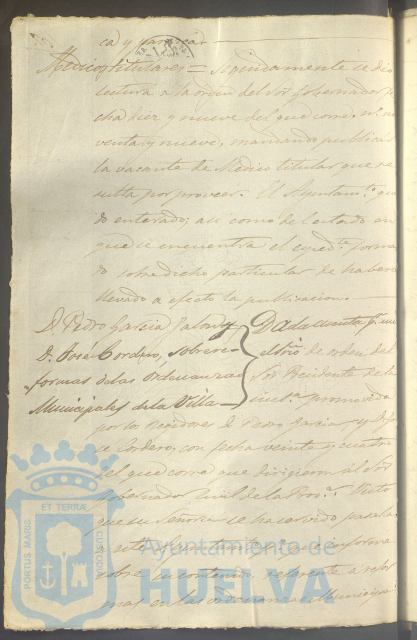 ca y
Medicos titulares = Seguidamente se dio
lectura a la orden del Sor. Gobernador fe
cha diez y nueve del que corre, no.
venta y nueve, mandando publicar
la vacante de Medico titular que re
sulta por proveer. El Ayuntamto. que
do enterado; asi como del estado en
que se encuentra el espedte. forma
do sobre dicho particular de haberse
llevado a efecto la publicacion.
D. Pedro Garcia Jalon y
D. José Cordero, sobre re-
formas de las Ordenanzas
Municipales de la Villa
Dada cuenta
de orden del
Sor Presidente de la
insta. promovida
por los Regidores D. Pedro Garcia y D. Jo
se Cordero, con fecha veinte y cuatro
del que corre que dirigieron al Sor
Gobernador Civil de la Prova.
que su Señoria se ha servido pasar la
a este Ayuntamiento informe
sobre su contenido, referente a refor
mas en las ordenanzas Municipa
PORTUS MARIS ET TERRÆ CUSTODIA
Ayuntamiento de
HUELVA